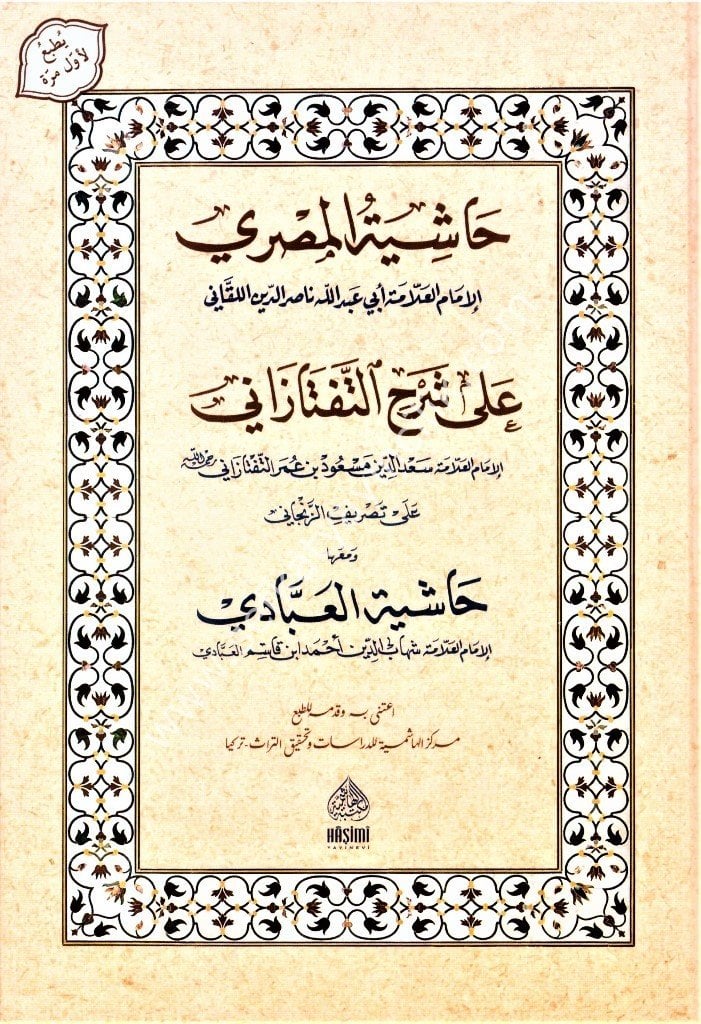 يُطبعُ
لأوّل مرّة
حَاشِيَةُ المِصْرِي
الإمَام العَلَّامَة أبي عَبد الله نَاصر الدّين اللقَّاني
عَلى شَرْحِ التَّفتَازَاني
الإمَام العَلَّامَة سَعد الدِّين مَسْعُود بن عُمَر التَّفْتَازَاني رحمه الله
عَلى تَصْرِيفِ الزَّنْجَاني
وَمَعَهَا
حَاشية العَبَّادي
الإمَام العَلَّامَة شهَاب الدِّين أحْمَد ابن قَاسِم العَبَّادي
اعتنى به وقدمه للطبع
مركز الهاشمية للدراسات وتحقيق التراث - تركيا
المكتبة الهاشمية
HÂŞİMİ
YAYINEVİ